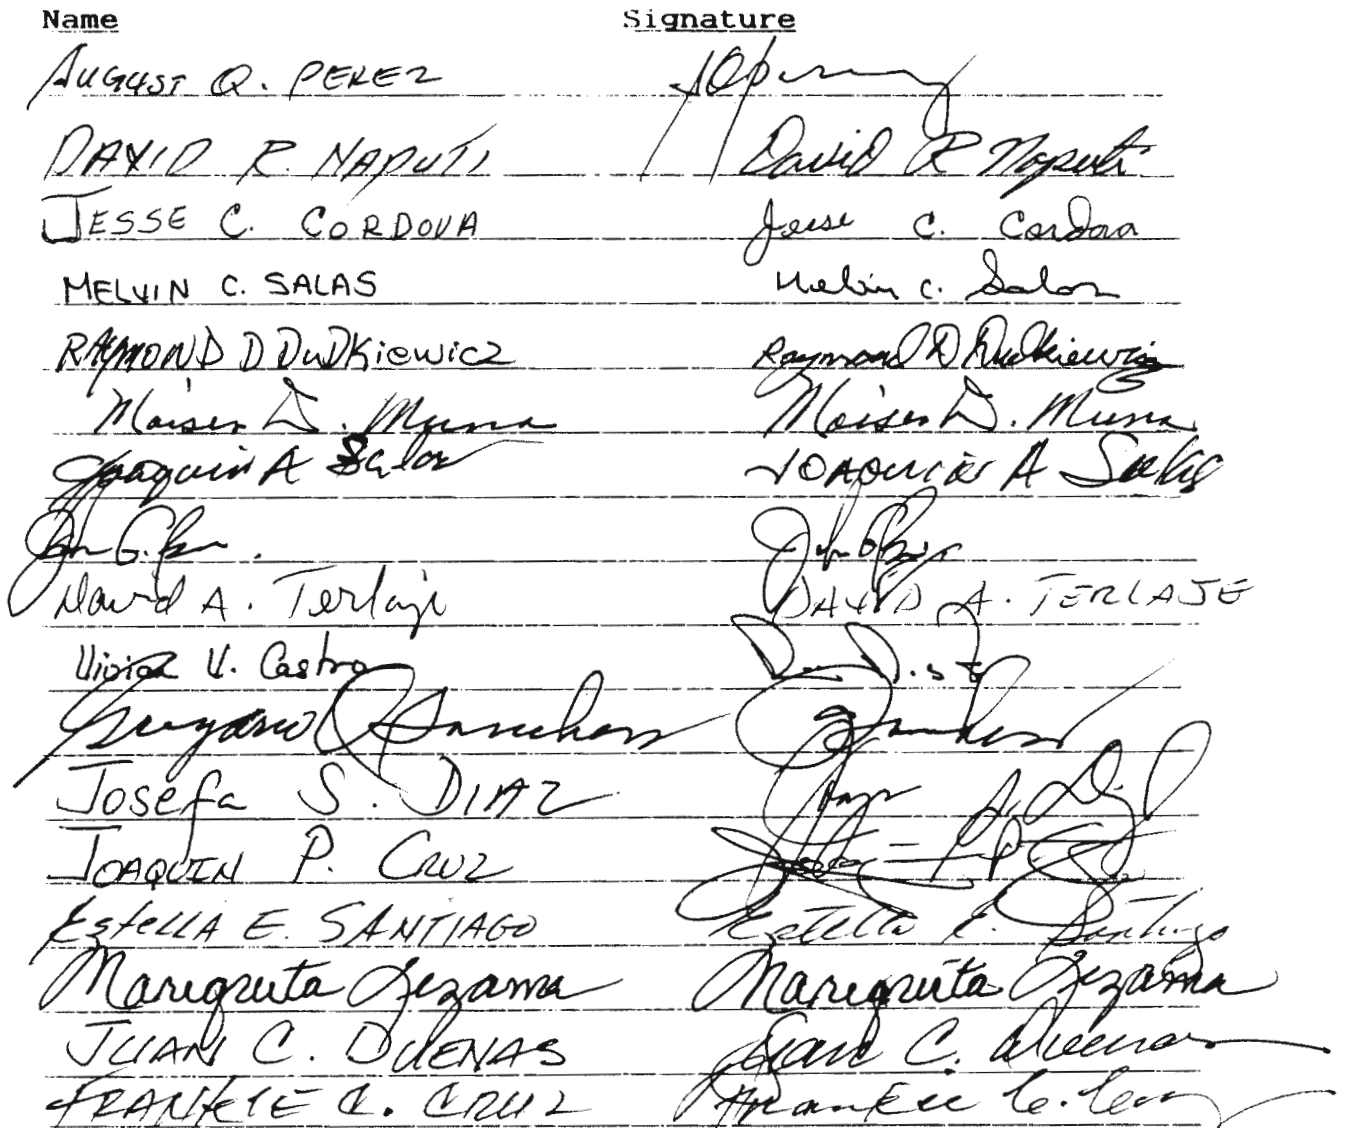 Name Signature
AUGUST Q. PEREZ
DAVID R. NAPUTI David R Naputi
JESSE C. CORDOVA Jesse C. Cordova
MELVIN C. SALAS Melvin C. Salas
RAYMOND D DUDKiewicz Raymond D Dudkiewicz
Moises D. Muna Moises D. Muna
Joaquin A Salas JOAQUIN A Salas
John G. John
David A. Terlaje DAVID A. TERLAJE
Vivian V. Castro
Sanchez
Josefa S. DIAZ
JOAQUIN P. CRUZ
EstellA E. SANTIAGO Estella E. Santiago
Marigruita Lezama Marigruita Lezama
JUAN C. DUENAS Juan C. Duenas
FRANKIE C. CRUZ Frankie C. Cruz